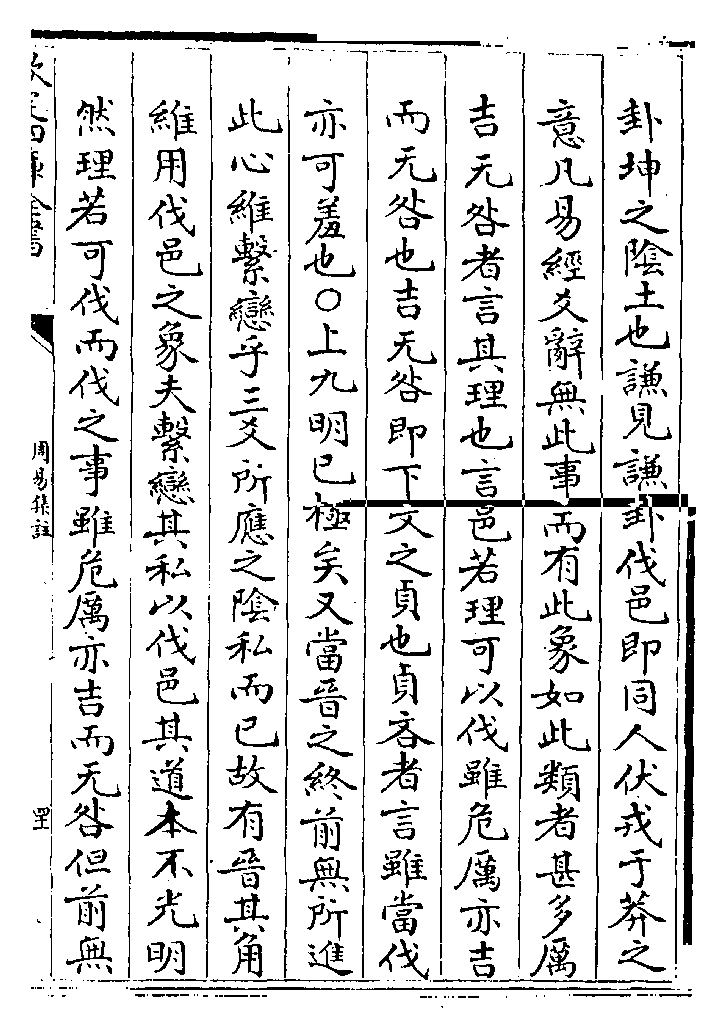 卦坤之陰土也謙見謙卦伐邑即同人伏戎于莽之
意凡易經爻辭無此事而有此象如此類者甚多厲
吉无咎者言其理也言邑若理可以伐雖危厲亦吉
而无咎也吉无咎即下文之貞也貞吝者言雖當伐
亦可羞也○上九明已極矣又當晉之終前無所進
此心維繫戀乎三爻所應之陰私而已故有晉其角
維用伐邑之象夫繫戀其私以伐邑其道本不光明
然理若可伐而伐之事雖危厲亦吉而无咎但前無
欽定四庫全書
周易集註